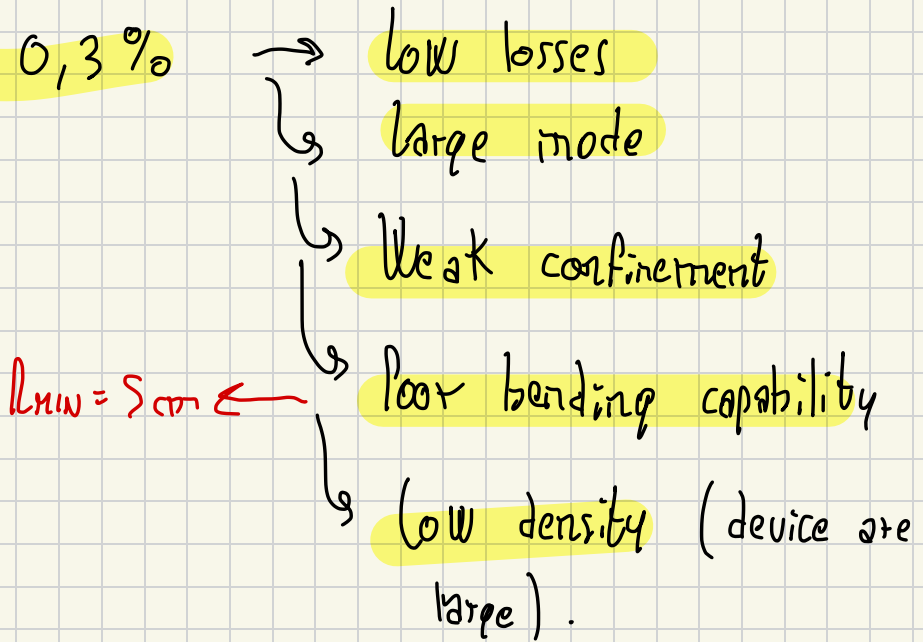 0,3 % → low losses
large mode
Weak confinement
RMIN = 5 cm ← Poor bending capability
low density (device are
large).